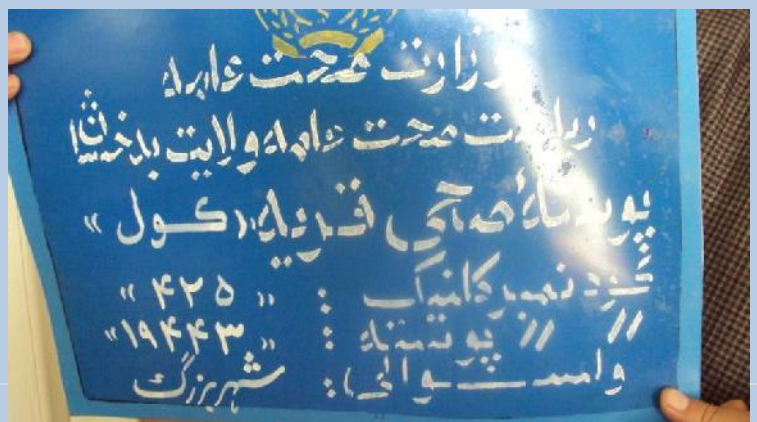 وزارت صحت عامه
ریاست صحت عامه ولایت بدخشان
پوسته صحی قریه «کول»
کود نمبر کلنیک : «۴۲۵»
// // پوسته : «۱۹۴۴۳»
ولسوالی : شهر بزرگ